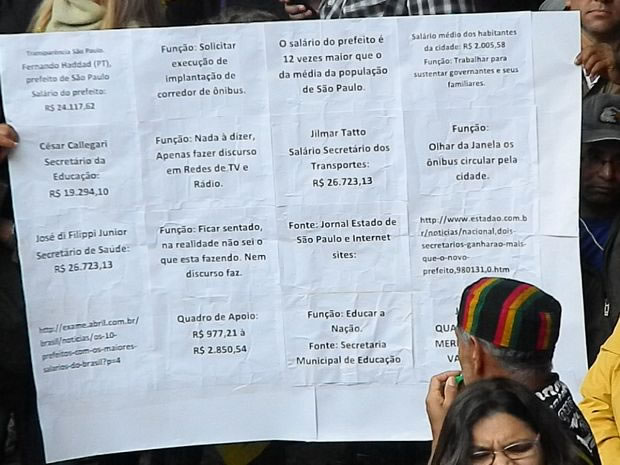 Transparência São Paulo.
Fernando Haddad (PT),
prefeito de São Paulo
Salário do prefeito:
R$ 24.117,62
Função: Solicitar
execução de
implantação de
corredor de ônibus.
O salário do prefeito é
12 vezes maior que o
da média da população
de São Paulo.
Salário médio dos habitantes
da cidade: R$ 2.005,58
Função: Trabalhar para
sustentar governantes e seus
familiares.
César Callegari
Secretário da
Educação:
R$ 19.294,10
Função: Nada à dizer,
Apenas fazer discurso
em Redes de TV e
Rádio.
Jilmar Tatto
Salário Secretário dos
Transportes:
R$ 26.723,13
Função:
Olhar da Janela os
ônibus circular pela
cidade.
José di Filippi Junior
Secretário de Saúde:
R$ 26.723,13
Função: Ficar sentado,
na realidade não sei o
que esta fazendo. Nem
discurso faz.
Fonte: Jornal Estado de
São Paulo e Internet
sites:
http://www.estadao.com.b
r/noticias/nacional,dois-
secretarios-ganharao-mais-
que-o-novo-
prefeito,980131,0.htm
http://exame.abril.com.br/
brasil/noticias/os-10-
prefeitos-com-os-maiores-
salarios-do-brasil?p=4
Quadro de Apoio:
R$ 977,21 à
R$ 2.850,54
Função: Educar a
Nação.
Fonte: Secretaria
Municipal de Educação